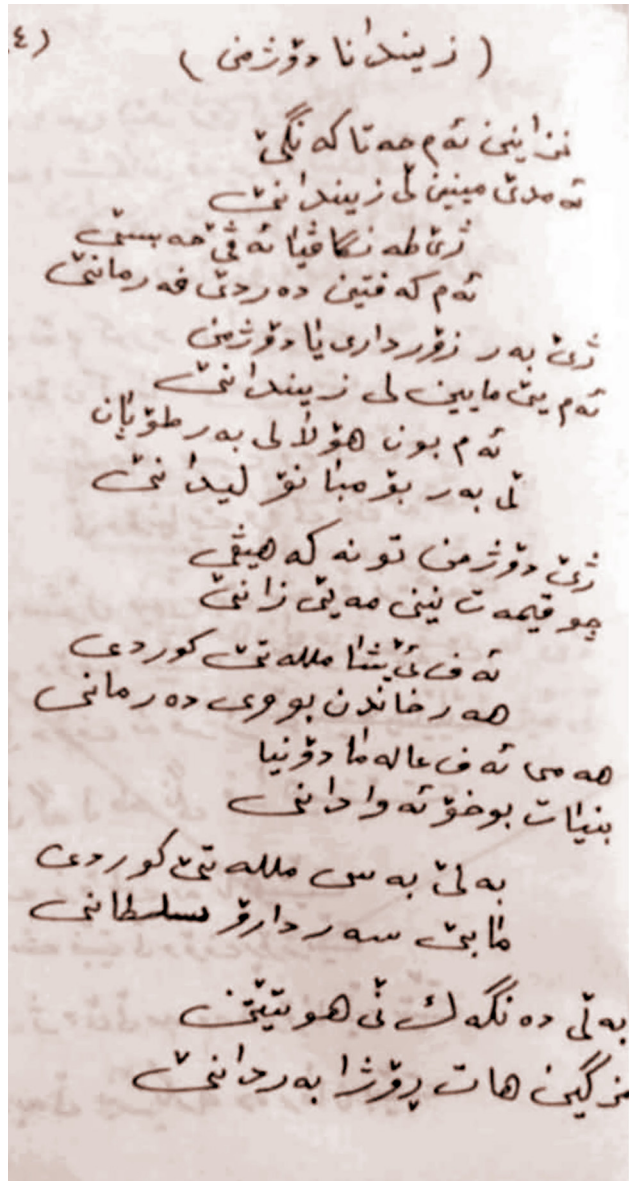 (٤)
( زیندانا دۆژمنی )
نزانین ئەم حەتا کەنگێ
ئەمدێ مینین لێ زیندانێ
ژێ طەنگاڤیا ئەڤێ حەبسێ
ئەم کەفتین دەردێ فەرمانێ
ژێ بەر زۆرداری یا دۆژمن
ئەم یێ مایین لی زیندانێ
ئەم بون هۆلا لی بەر طۆپان
لێ بەر بۆمبا نۆ لیدانێ
ژێ دۆژمن تو نەکە هیڤی
چو قیمەت نینی مەیێ زانێ
ئەڤ ئێشا مللەتێ کوردی
هەر خاندن بووی دەرمانی
هەمی ئەڤ عالەما دۆنیا
بنیات بوخۆ ئەوادانی
بەلێ بەس مللەتێ کوردی
مابێ سەردارۆ سلطانی
بەلێ دەنگەك نێ هوتێتن
مزگین هات رۆژا بەردانێ